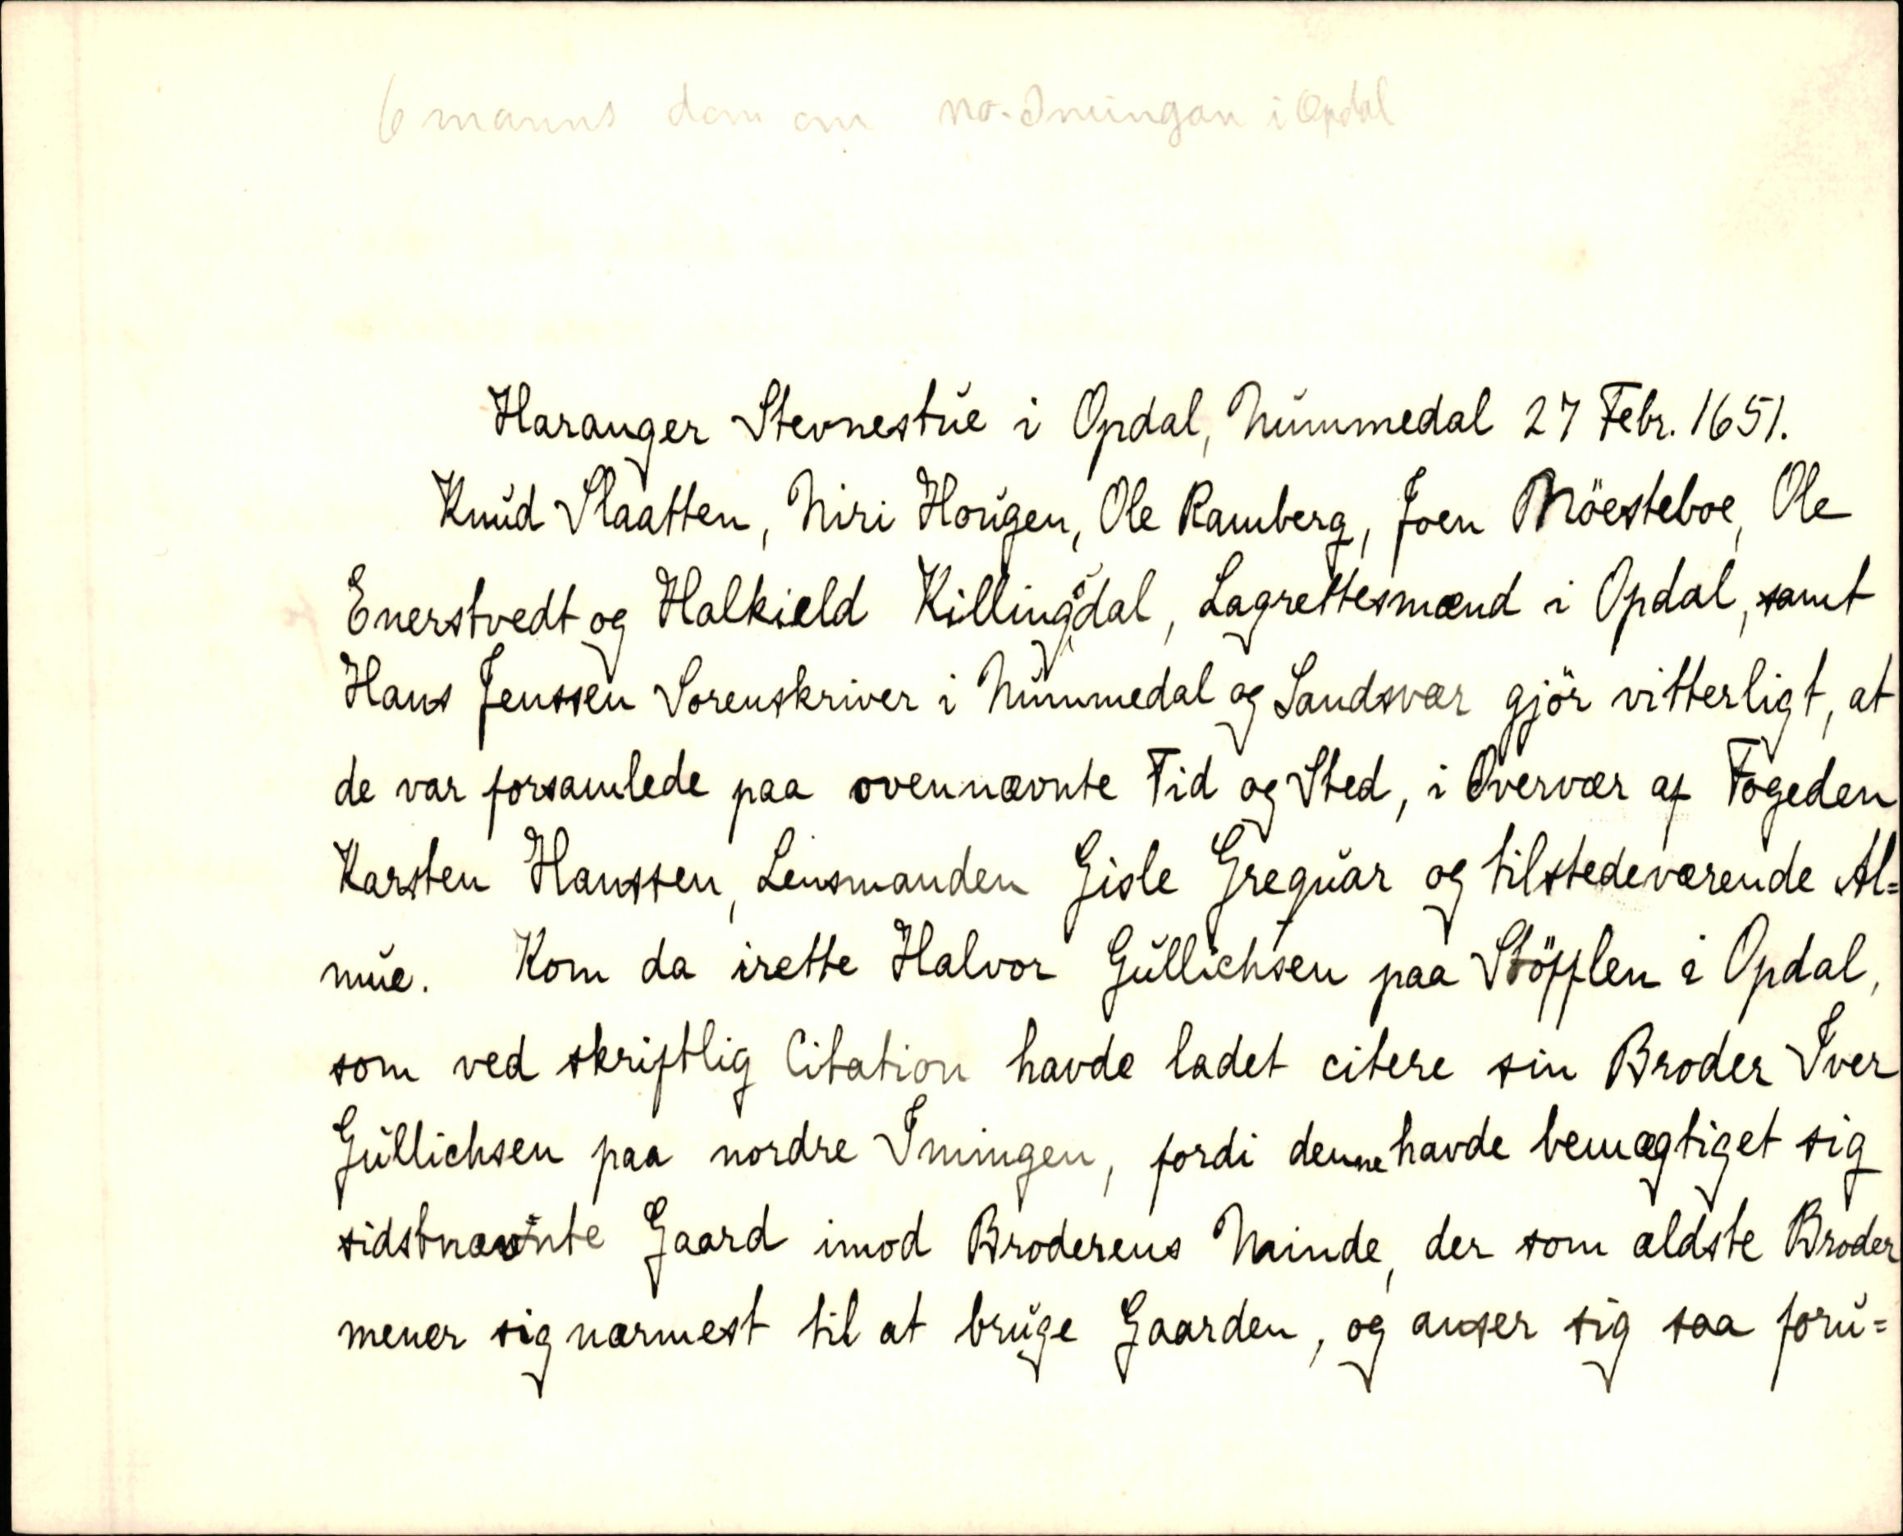 6 manns dom om no. Inningan i Opdal
Haranger Stevnestue i Opdal, Nummedal 27 Febr. 1651.
Knud Slaatten, Niri Hougen, Ole Ramberg, Joen Möesteboe, Ole
Enerstvedt og Halkield Killingsdal, Lagrettesmænd i Opdal, samt
Hans Jenssen Sorenskriver i Nummedal og Sandsvær gjör vitterligt, at
de var forsamlede paa ovennævnte Tid og Sted, i Overvær af Fogeden
Karsten Hanssen, Lensmanden Gisle Greguar og tilstedeværende Al=
mue. Kom da irette Halvor Gullichsen paa Stöfflen i Opdal,
som ved skriftlig Citation havde ladet citere sin Broder Iver
Gullichsen paa nordre Inningen, fordi denne havde bemægtiget sig
sidstnævnte Gaard imod Broderens Minde, der som ældste Broder
mener sig nærmest til at bruge Gaarden, og anser sig saa foru=